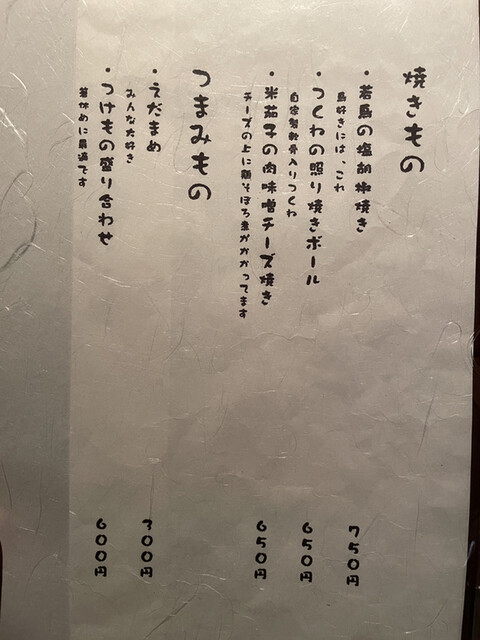 焼きもの
・若鳥の塩胡椒焼き 750円
鳥好きには、これ
・つくねの照り焼きボール 650円
自家製軟骨入りつくね
・米茄子の肉味噌チーズ焼き 650円
チーズの上に鶏そぼろ煮がかかってます
つまみもの
・えだまめ 300円
みんな大好き
・つけもの盛り合わせ 600円
箸休めに最適です